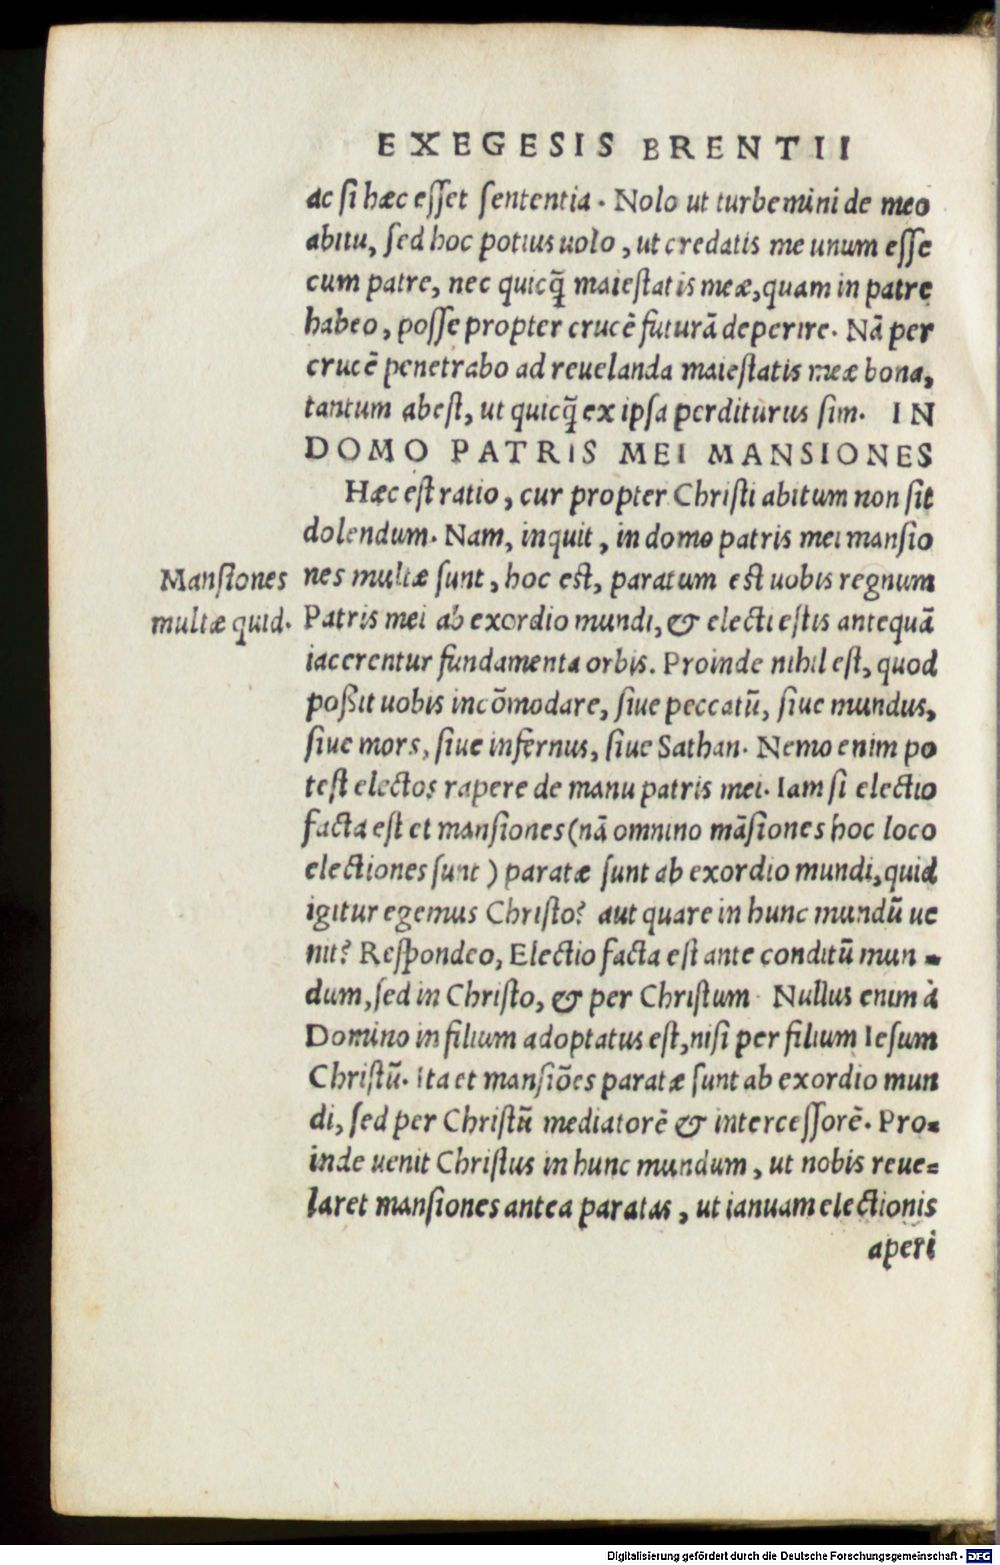 EXEGESIS BRENTII
ac ſi hæc eſſet ſententia. Nolo ut turbemini de meo
abitu, ſed hoc potius uolo, ut credatis me unum eſſe
cum patre, nec quicq̃ maieſtatis meæ, quam in patre
habeo, poſſe propter crucẽ futurã deperire. Nã per
crucẽ penetrabo ad reuelanda maieſtatis meæ bona,
tantum abeſt, ut quicq̃ ex ipſa perditurus ſim. IN
DOMO PATRIS MEI MANSIONES
Hæc eſt ratio, cur propter Chriſti abitum non ſit
dolendum. Nam, inquit, in domo patris mei manſio
Manſiones
multæ quid.
nes multæ ſunt, hoc eſt, paratum eſt uobis regnum
Patris mei ab exordio mundi, & electi eſtis antequã
iacerentur fundamenta orbis. Proinde nihil eſt, quod
poßit uobis incõmodare, ſiue peccatũ, ſiue mundus,
ſiue mors, ſiue infernus, ſiue Sathan. Nemo enim po
teſt electos rapere de manu patris mei. Iam ſi electio
facta eſt et manſiones (nã omnino mãſiones hoc loco
electiones ſunt) paratæ ſunt ab exordio mundi, quid
igitur egemus Chriſto? aut quare in hunc mundũ ue
nit? Reſpondeo, Electio facta eſt ante conditũ mun-
dum, ſed in Chriſto, & per Chriſtum Nullus enim à
Domino in filium adoptatus eſt, niſi per filium Ieſum
Chriſtũ. Ita et manſiões paratæ ſunt ab exordio mun
di, ſed per Chriſtũ mediatorẽ & interceſſorẽ. Pro-
inde uenit Chriſtus in hunc mundum, ut nobis reue=
laret manſiones antea paratas, ut ianuam electionis
aperi
Digitalisierung gefördert durch die Deutsche Forschungsgemeinschaft - DFG